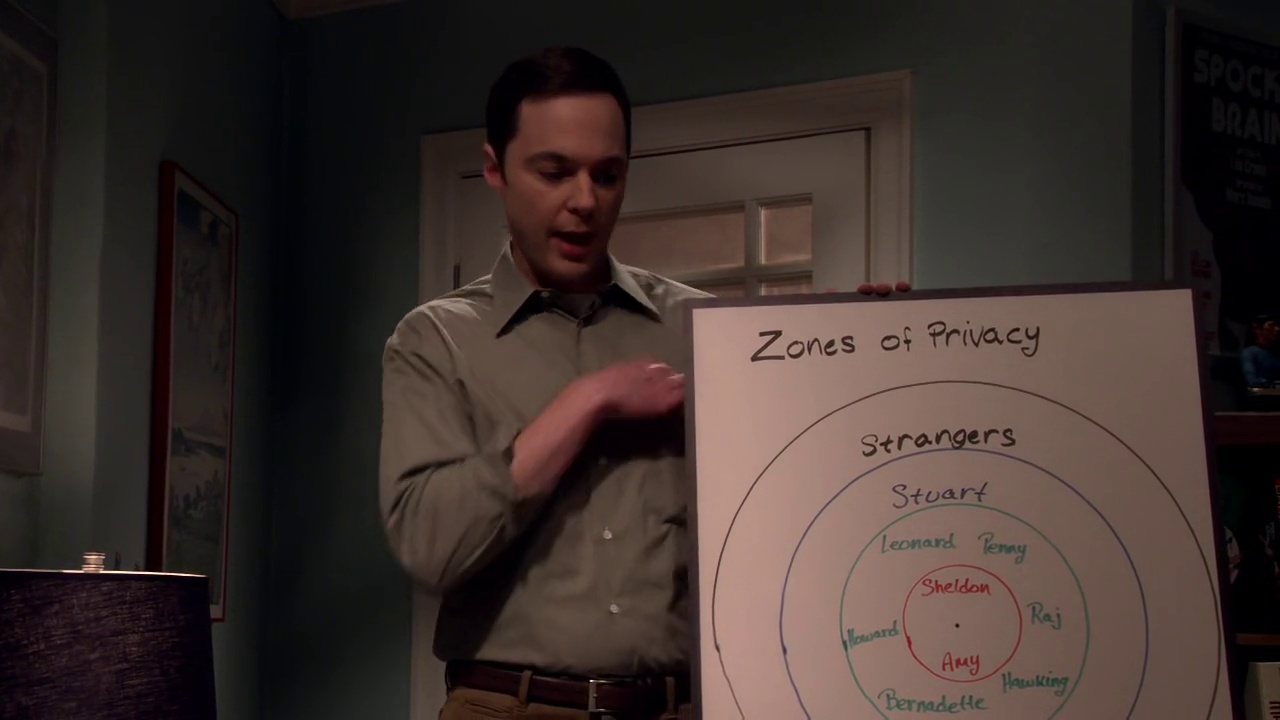 SPOCK
BRAIN
Zones of Privacy
Strangers
Stuart
Leonard Penny
Sheldon
Raj
Howard
Amy
Hawking
Bernadette